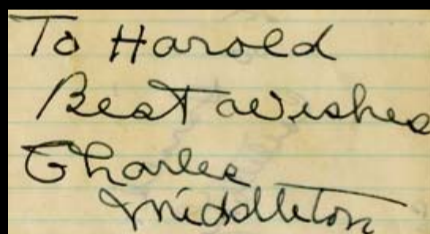 To Harold
Best Wishes
Charles
Middleton